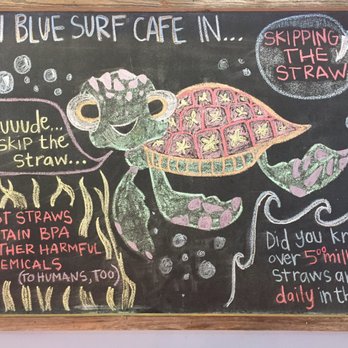 BLUE SURF CAFE IN...
SKIPPING
THE
STRAW
uuude...
SKIP the
straw...
STRAWS
TAIN BPA
THER HARMFUL
EMICALS
(TO HUMANS, TOO)
Did you kno
over 500 mill
straws a
daily in th